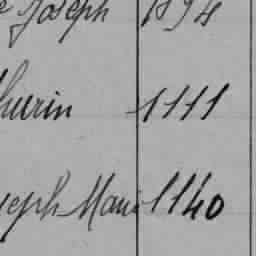 Joseph 1894
thurin 1111
seph Marie 1140